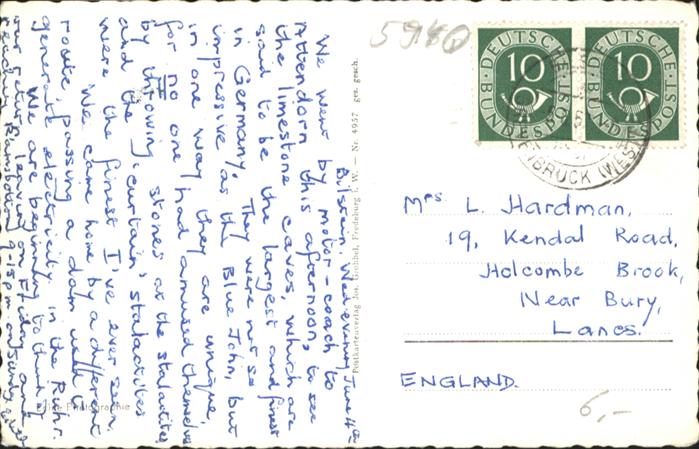 5980
DEUTSCHE BUNDESPOST
10
DEUTSCHE BUNDESPOST
10
BRUCK (WESTF
Bilstein, Wed. evening June 4th
We went by motor-coach to
Attendorn this afternoon, to see
the limestone caves, which are
said to be the largest and finest
in Germany. They were not so
impressive as the Blue John, but
in one way they are unique,
for no one had amused themselves
by throwing stones at the stalactites
and the 'curtain' stalactites
were the finest I've ever seen.
We came home by a different
route, passing a dam used to
generate electricity in the Ruhr.
We are beginning to think of
our return, leaving on Friday and
9-15pm
Postkartenverlag Jos. Grobbel, Fredeburg i. W. — Nr. 4957 gez. gesch.
Photographie
Mrs. L. Hardman,
19, Kendal Road,
Holcombe Brook,
Near Bury,
Lancs.
ENGLAND.
6,-